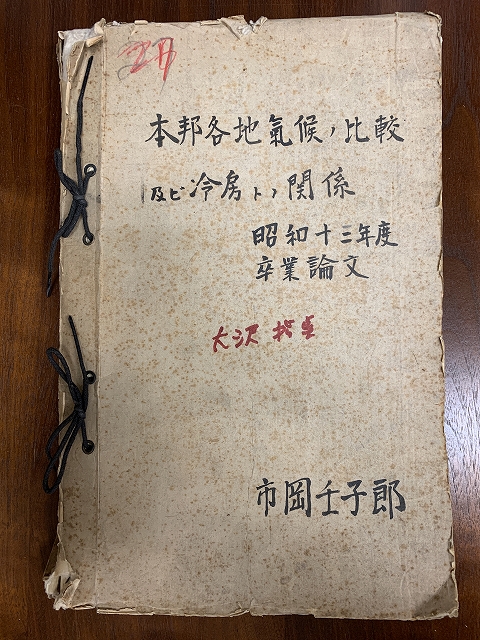 本邦各地氣候ノ比較
及ビ冷房トノ関係
昭和十三年度
卒業論文
大沢
市岡壬子郎